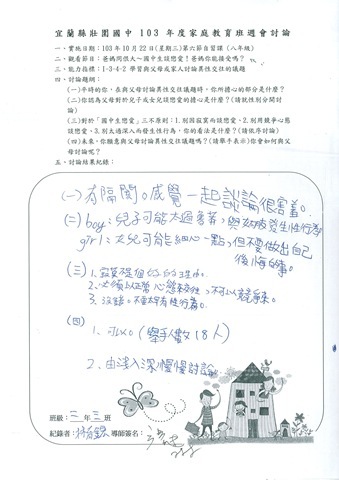 宜蘭縣壯圍國中 103 年度家庭教育班週會討論
一、實施日期：103 年 10 月 22 日(星期三)第六節自習課 (八年級)
二、觀看節目：爸媽悶很大~國中生談戀愛！爸媽你能接受嗎？
三、能力指標：1-3-4-2 學習與父母或家人討論異性交往的議題
四、討論題綱：
(一)平時的你，在與父母討論異性交往議題時，你所擔心的部分是什麼？
(二)你認為父母對於兒子或女兒談戀愛的擔心是什麼？(請就性別分開討
論)
(三)對於「國中生戀愛」三不原則：1.別因寂寞而談戀愛、2.別用競爭心態
談戀愛、3.別太過深入而發生性行為，你的看法是什麼？(請依序討論)
(四)未來，你願意與父母討論異性交往議題嗎？(請舉手表示)你會如何與父
母討論呢？
五、討論結果紀錄：
(一)有隔閡。感覺一起討論很害羞。
(二) boy：兒子可能太過害羞，與女孩發生性行為
girl：女兒可能細心一點，但不要做出自己
後悔的事。
(三) 1. 寂寞不是個好的理由。
2. 不可以競爭來。
3. 沒錯。不要太早有性行為。
(四)
1、可以。(舉手人數 18 人)
2、由淺入深，慢慢討論
班級：三年三班
紀錄者：
導師簽名：